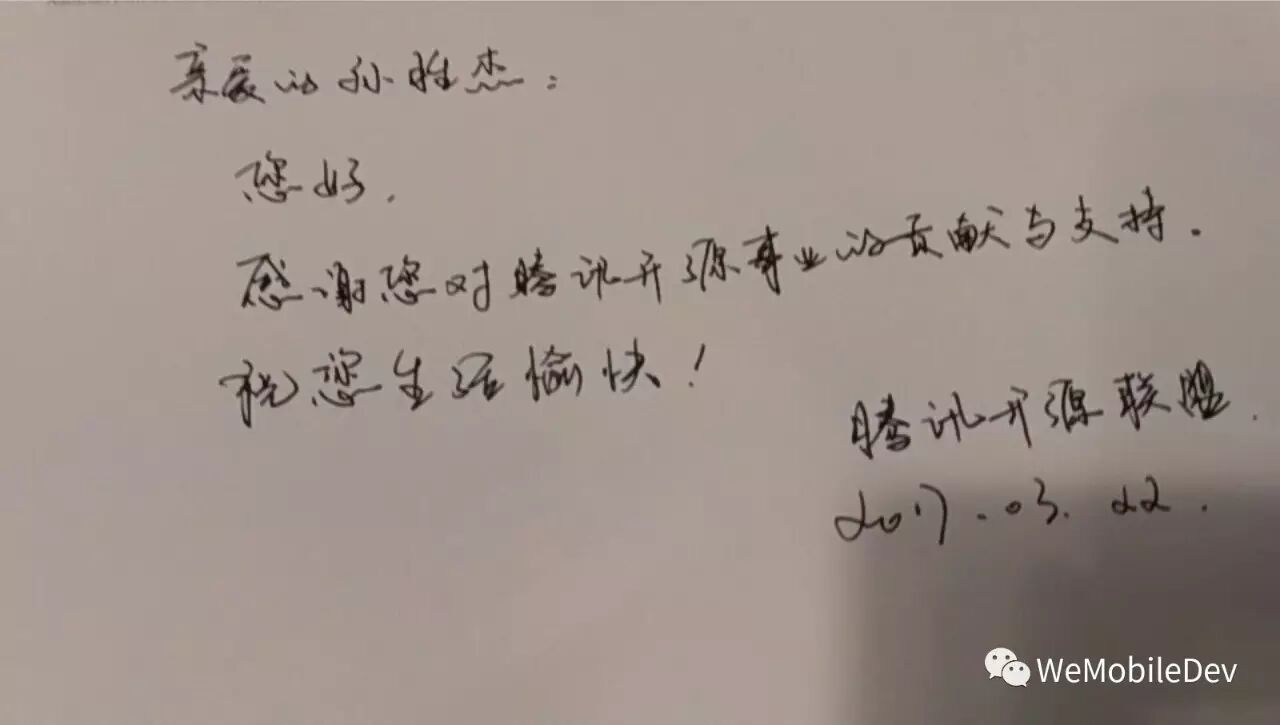 亲爱的孙胜杰：
您好.
感谢您对腾讯开源事业的贡献与支持.
祝您生活愉快！
腾讯开源联盟.
2017.03.22.
WeMobileDev